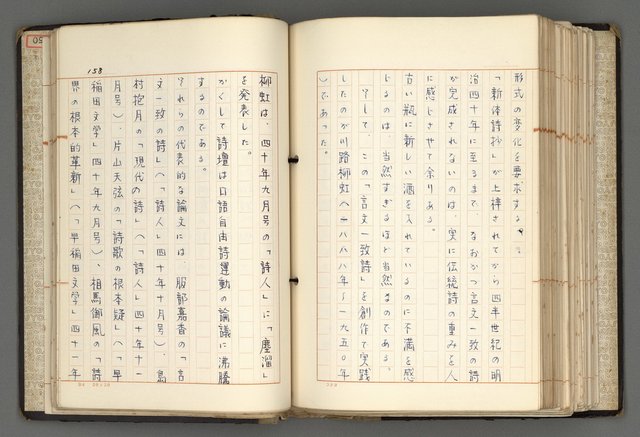 形式の変化を要求する。
「新体詩抄」が上梓されてから四半世紀の明
治四十年に至るまで、なおかつ言文一致の詩
が完成されないのは、実に伝統詩の重みを人
に感じさせて余りある。
古い瓶に新しい酒を入れているのに不満を感
じるのは、当然すぎるほど当然なのである。
そして、この「言文一致詩」を創作で実践
したのが川路柳虹(一八八八年〜一九五〇年
)であった。
158
柳虹は、四十年九月号の「詩人」に「塵溜」
を発表した。
かくして詩壇は口語自由詩運動の論議に沸騰
するのである。
それらの代表的な論文には、服部嘉香の「言
文一致の詩」(「詩人」四十年十月号)、島
村抱月の「現代の詩」(「詩人」四十年十一
月号)、片山天弦の「詩歌の根本疑」(「早
稲田文学」四十年九月号)、相馬御風の「詩
界の根本的革新」(「早稲田文学」四十一年